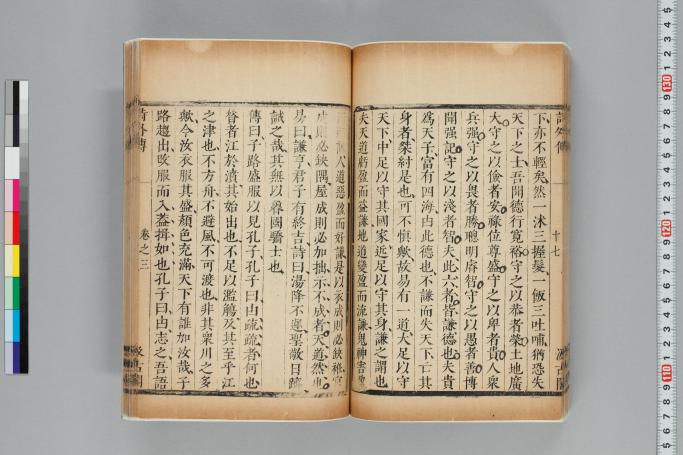 詩外傳
十七
汲古閣
下亦不輕矣然一沐三握髮一飯三吐哺猶恐失
天下之士吾聞德行寬裕守之以恭者榮土地廣
大守之以儉者安祿位尊盛守之以卑者貴人衆
兵强守之以畏者勝聰明睿智守之以愚者善博
聞强記守之以淺者智夫此六者皆謙德也夫貴
爲天子富有四海由此德也不謙而失天下亡其
身者桀紂是也可不愼歟故易有一道大足以守
天下中足以守其國家近足以守其身謙之謂也
夫天道虧盈而益謙地道變盈而流謙鬼神害盈
而福謙人道惡盈而好謙是以衣成則必缺袵宮
成則必缺隅屋成則必加拙示不成者天道然也
易曰謙亨君子有終吉詩曰湯降不遲聖敬日躋
誡之哉其無以魯國驕士也
傳曰子路盛服以見孔子孔子曰由疏疏者何也
昔者江於濆其始出也不足以濫觴及其至乎江
之津也不方舟不避風不可渡也非其衆川之多
歟今汝衣服其盛顏色充滿天下有誰加汝哉子
路趨出改服而入葢揖如也孔子曰由志之吾語
詩外傳
卷之三
汲古閣
10
9
8
7
6
5
4
3
2
1
130
120
110